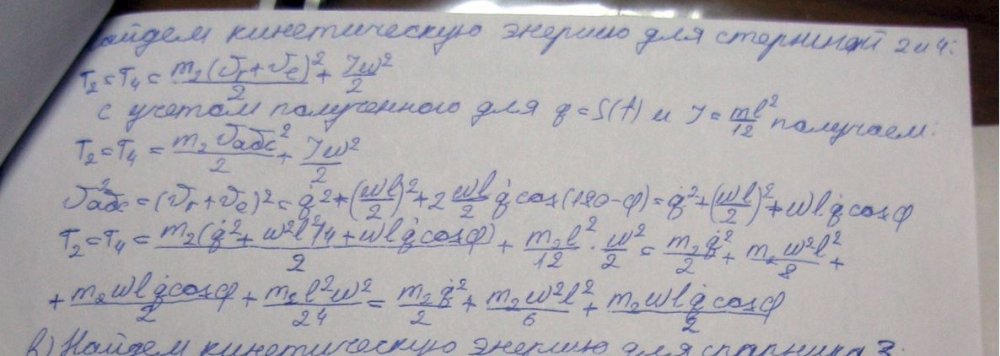 айдем кинетическую энергию для стержней 2 и 4:
T₂=T₄= m₂(V̄r+V̄e)²/2 + Jω²/2
с учетом полученного для q=S(t) и J= ml²/12 получаем:
T₂=T₄= m₂V̄абс²/2 + Jω²/2
V̄²абс=(V̄r+V̄e)²=q̇²+(ωl/2)²+2 ωl/2 q̇ cos(180-φ)=q̇²+(ωl/2)²+ωlq̇cosφ
T₂=T₄= m₂(q̇²+ω²l²/4+ωlq̇cosφ)/2 + m₂l²/12 · ω²/2 = m₂q̇²/2 + m₂ω²l²/8 +
+ m₂ωlq̇cosφ/2 + m₂l²ω²/24 = m₂q̇²/2 + m₂ω²l²/6 + m₂ωlq̇cosφ/2
в) Найдем кинетическую энергию для спарника 3: